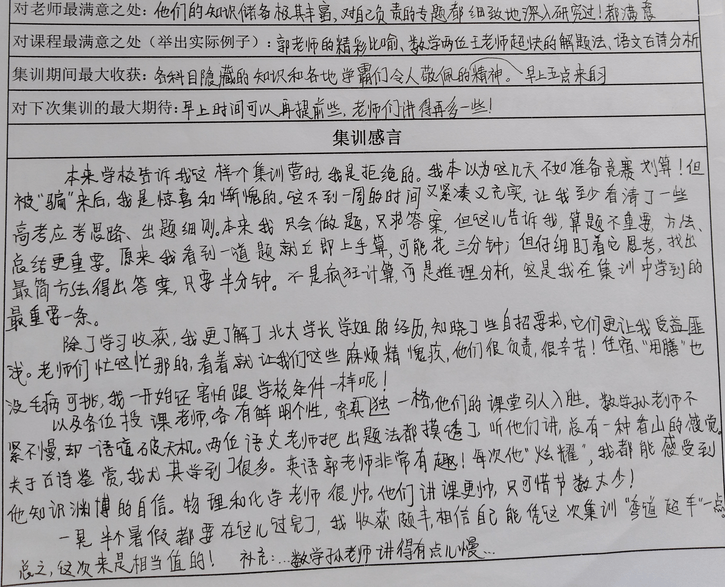 对老师最满意之处：他们的知识储备极其丰富，对自己负责的专题都细致地深入研究过！都满意
对课程最满意之处（举出实际例子）：郭老师的精彩比喻、数学两位王老师超快的解题法、语文古诗分析
集训期间最大收获：各科目隐藏的知识和各地学霸们令人敬佩的精神。早上五点来自习
对下次集训的最大期待：早上时间可以再提前些，老师们讲得再多一些！
集训感言
本来学校告诉我这样个集训营时，我是拒绝的。我本以为这几天不如准备竞赛划算！但
被“骗”来后，我是惊喜和惭愧的。这不到一周的时间又紧凑又充实，让我至少看清了一些
高考应考思路、出题细则。本来我只会做题，只求答案，但这儿告诉我，算题不重要，方法、
总结更重要。原来我看到一道题就立即上手算，可能花三分钟；但仔细盯着它思考，找出
最简方法得出答案，只要半分钟。不是疯狂计算，而是推理分析，这是我在集训中学到的
最重要一条。
除了学习收获，我更了解了北大学长学姐的经历，知晓了些自招要求，它们更让我受益匪
浅。老师们忙这忙那的，看着就让我们这些麻烦精愧疚，他们很负责，很辛苦！住宿、“用膳”也
没毛病可挑，我一开始还害怕跟学校条件一样呢！
以及各位授课老师，各有鲜明个性，独一格，他们的课堂引人入胜。数学孙老师不
紧不慢，却一语道破天机。两位语文老师把出题法都摸透了，听他们讲，总有一种看山的感觉。
关于古诗鉴赏，我尤其学到了很多。英语郭老师非常有趣！每次他“炫耀”，我都能感受到
他知识渊博的自信。物理和化学老师很帅，他们讲课更帅，只可惜节数太少！
一晃半个暑假都要在这儿过完了，我收获颇丰，相信自己能凭这次集训“弯道超车”一点。
总之，这次来是相当值的！ 补充：…数学孙老师讲得有点儿慢…